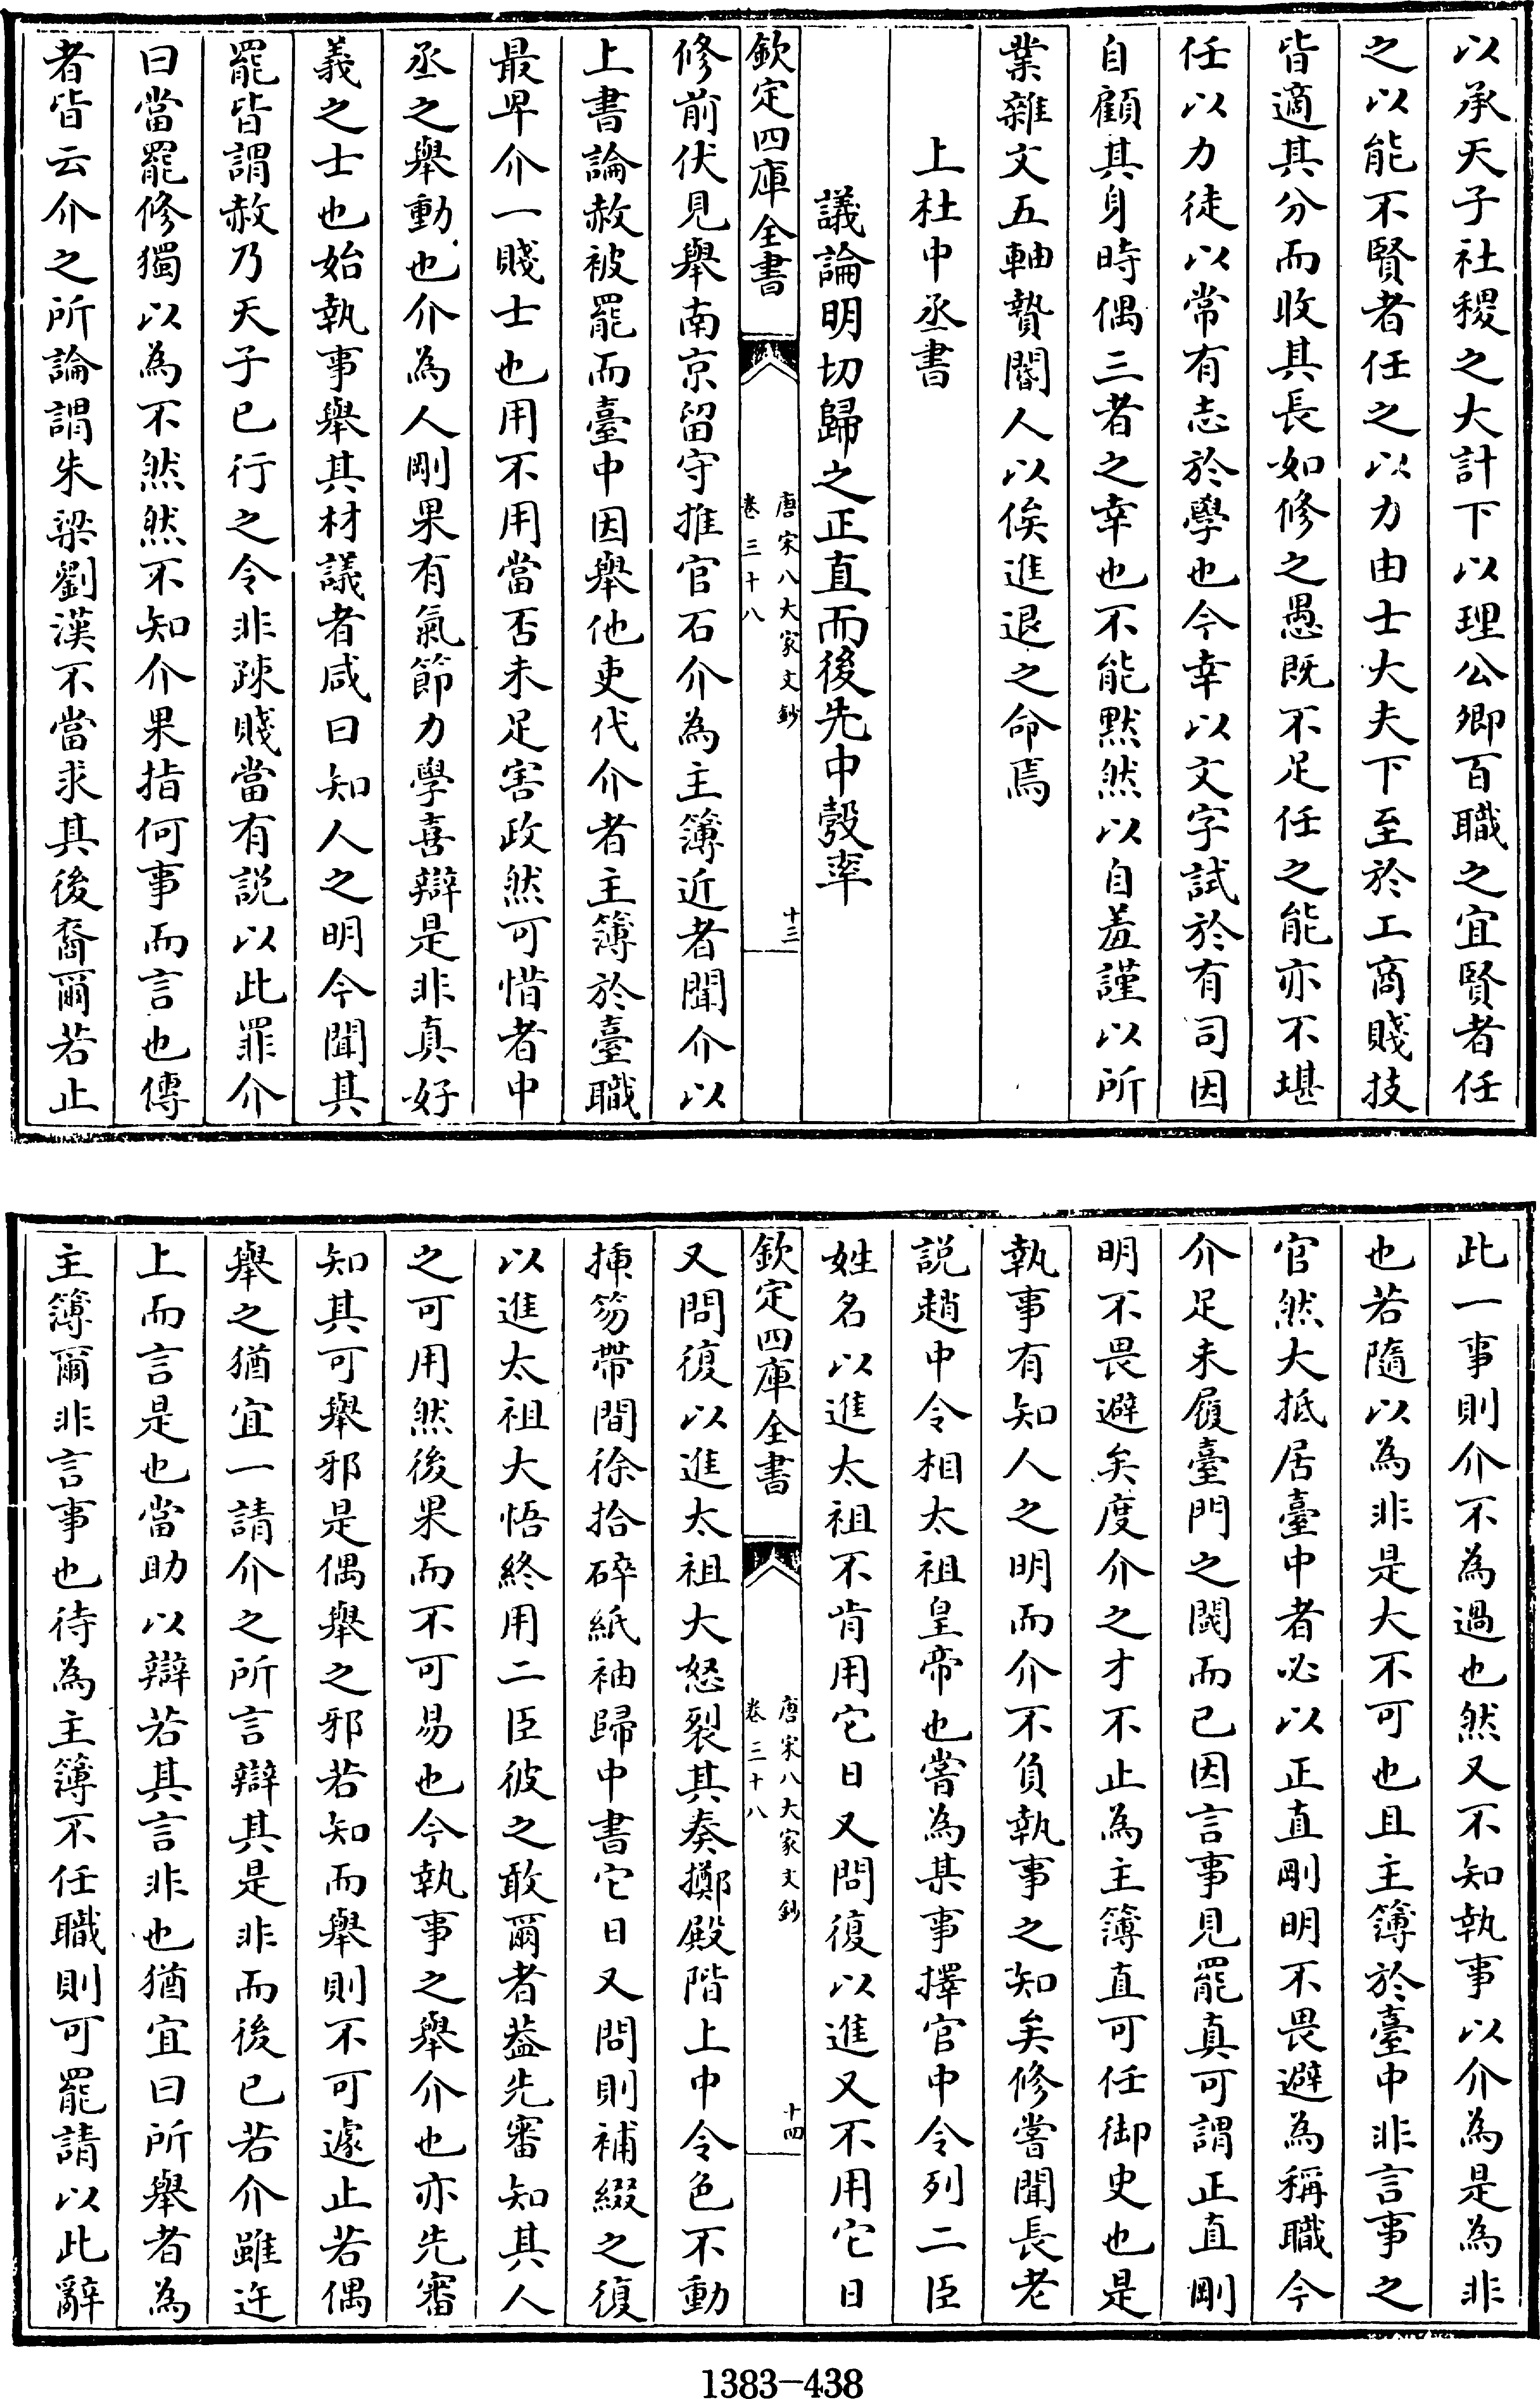 以承天子社稷之大計下以理公卿百職之宜賢者任
之以能不賢者任之以力由士大夫下至於工商賤技
皆適其分而收其長如修之愚既不足任之能亦不堪
任以力徒以常有志於學也今幸以文字試於有司因
自顧其身時偶三者之幸也不能默然以自羞謹以所
業雜文五軸贄閽人以俟進退之命焉
上杜中丞書
議論明切歸之正直而後先中彀率
欽定四庫全書
唐宋八大家文鈔
卷三十八
十三
修前伏見舉南京留守推官石介為主簿近者聞介以
上書論赦被罷而臺中因舉他吏代介者主簿於臺職
最卑介一賤士也用不用當否未足害政然可惜者中
丞之舉動也介為人剛果有氣節力學喜辯是非真好
義之士也始執事舉其材議者咸曰知人之明今聞其
罷皆謂赦乃天子已行之令非疎賤當有説以此罪介
曰當罷修獨以為不然然不知介果指何事而言也傳
者皆云介之所論謂朱梁劉漢不當求其後裔爾若止
此一事則介不為過也然又不知執事以介為是為非
也若隨以為非是大不可也且主簿於臺中非言事之
官然大抵居臺中者必以正直剛明不畏避為稱職今
介足未履臺門之閾而已因言事見罷真可謂正直剛
明不畏避矣度介之才不止為主簿直可任御史也是
執事有知人之明而介不負執事之知矣修嘗聞長老
説趙中令相太祖皇帝也嘗為某事擇官中令列二臣
姓名以進太祖不肯用它日又問復以進又不用它日
欽定四庫全書
唐宋八大家文鈔
卷三十八
十四
又問復以進太祖大怒裂其奏擲殿階上中令色不動
揷笏帶間徐拾碎紙袖歸中書它日又問則補綴之復
以進太祖大悟終用二臣彼之敢爾者葢先審知其人
之可用然後果而不可易也今執事之舉介也亦先審
知其可舉邪是偶舉之邪若知而舉則不可遽止若偶
舉之猶宜一請介之所言辯其是非而後已若介雖迕
上而言是也當助以辯若其言非也猶宜曰所舉者為
主簿爾非言事也待為主簿不任職則可罷請以此辭
1383-438